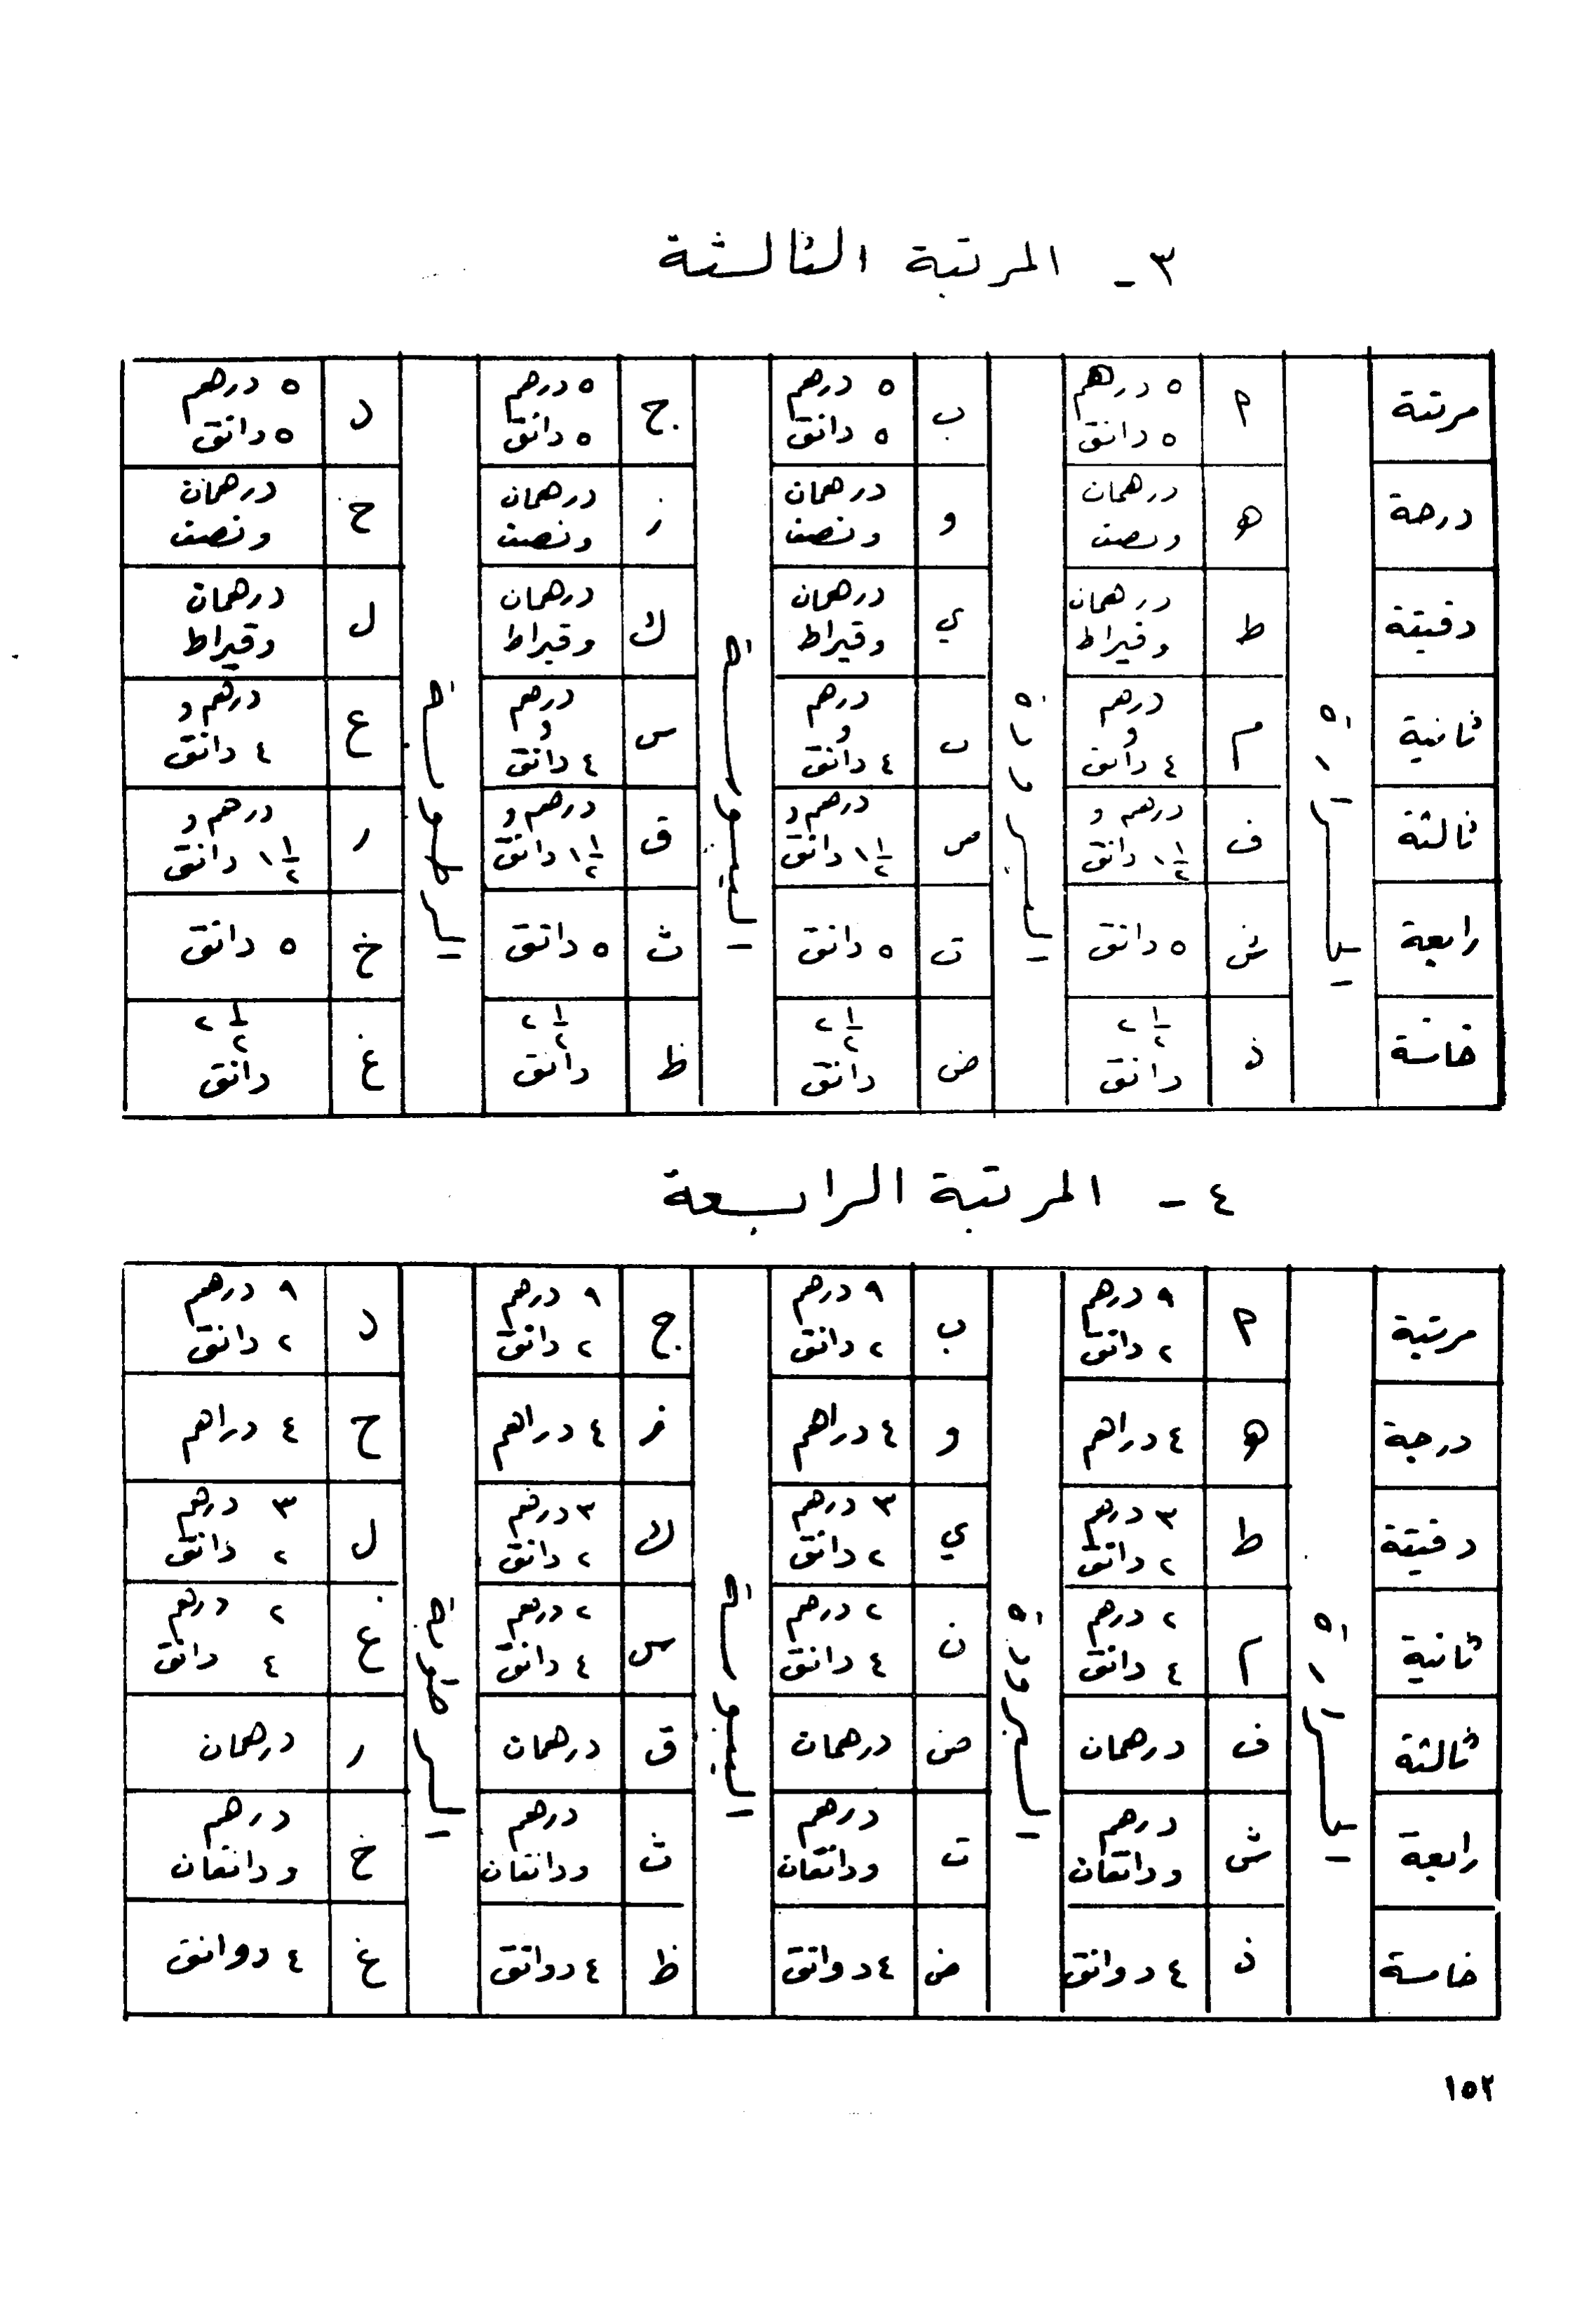 ٣ - المرتبة الثالثة
مرتبة ا ٥ درهم ٥ دانق ب ٥ درهم ٥ دانق ج ٥ درهم ٥ دانق د ٥ درهم ٥ دانق
درجة هـ درهمان ونصف و درهمان ونصف ز درهمان ونصف ح درهمان ونصف
دقيقة ط درهمان وقيراط ي درهمان وقيراط ك درهمان وقيراط ل درهمان وقيراط
ثانية م درهم و ٤ دانق ن درهم و ٤ دانق س درهم و ٤ دانق ع درهم و ٤ دانق
ثالثة ف درهم و ١ ١/٢ دانق ص درهم و ١ ١/٢ دانق ق درهم و ١ ١/٢ دانق ر درهم و ١ ١/٢ دانق
رابعة ش ٥ دانق ت ٥ دانق ث ٥ دانق خ ٥ دانق
خامسة ذ ٢ ١/٢ دانق ض ٢ ١/٢ دانق ظ ٢ ١/٢ دانق غ ٢ ١/٢ دانق
الحرارة
البرودة
اليبوسة
الرطوبة
٤ - المرتبة الرابعة
مرتبة ا ٩ درهم ٢ دانق ب ٩ درهم ٢ دانق ج ٩ درهم ٢ دانق د ٩ درهم ٢ دانق
درجة هـ ٤ دراهم و ٤ دراهم ز ٤ دراهم ح ٤ دراهم
دقيقة ط ٣ درهم ٢ دانق ي ٣ درهم ٢ دانق ك ٣ درهم ٢ دانق ل ٣ درهم ٢ دانق
ثانية م ٢ درهم ٤ دانق ن ٢ درهم ٤ دانق س ٢ درهم ٤ دانق ع ٢ درهم ٤ دانق
ثالثة ف درهمان ض درهمان ق درهمان ر درهمان
رابعة ش درهم ودانقان ت درهم ودانقان ث درهم ودانقان خ درهم ودانقان
خامسة ذ ٤ دوانق ض ٤ دوانق ظ ٤ دوانق غ ٤ دوانق
الحرارة
البرودة
اليبوسة
الرطوبة
١٥٢